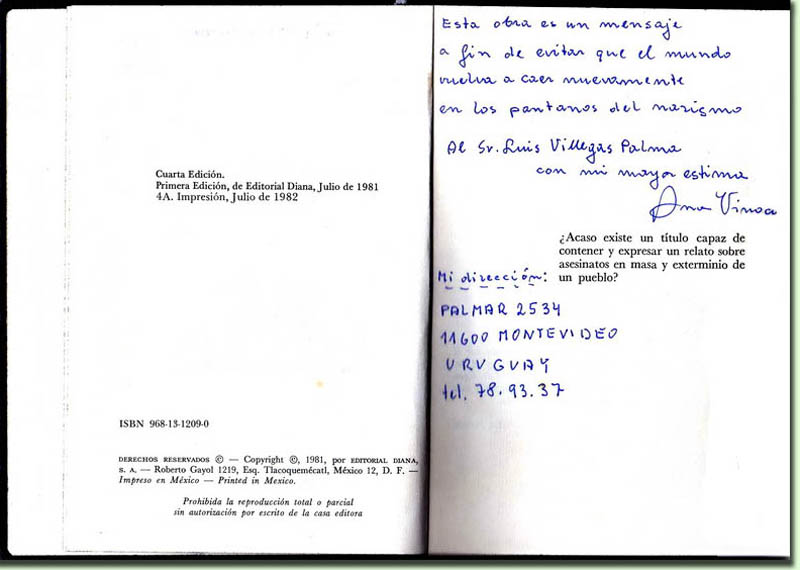 Cuarta Edición.
Primera Edición, de Editorial Diana, Julio de 1981
4A. Impresión, Julio de 1982
ISBN 968-13-1209-0
DERECHOS RESERVADOS © — Copyright ©, 1981, por EDITORIAL DIANA,
S. A. — Roberto Gayol 1219, Esq. Tlacoquemécatl, México 12, D. F. —
Impreso en México — Printed in Mexico.
Prohibida la reproducción total o parcial
sin autorización por escrito de la casa editora
Esta obra es un mensaje
a fin de evitar que el mundo
vuelva a caer nuevamente
en los pantanos del nazismo
Al Sr. Luis Villegas Palma
con mi mayor estima
Ana Vinoc
¿Acaso existe un título capaz de
contener y expresar un relato sobre
asesinatos en masa y exterminio de
un pueblo?
Mi dirección:
PALMAR 2534
11600 MONTEVIDEO
URUGUAY
tel. 78.93.37